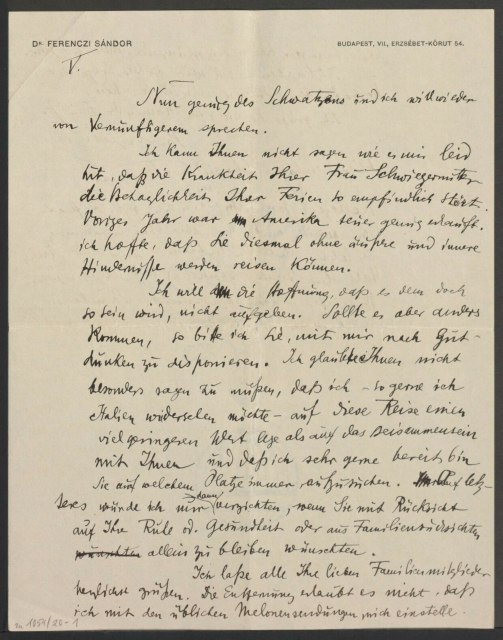 Dr. FERENCZI SÁNDOR
BUDAPEST, VII., ERZSÉBET-KÖRUT 54.
V.
Nun genug des Schwatzens und ich will wieder
von Vernünftigerem sprechen.
Ich kann Ihnen nicht sagen wie es mir leid
tut, daß die Krankheit Ihrer Frau Schwiegermutter
die Behaglichkeit Ihrer Ferien so empfindlich stört.
Voriges Jahr war Amerika teuer genug erkauft.
ich hoffte, daß Sie diesmal ohne äußere und innere
Hindernisse werden reisen können.
Ich will die Hoffnung, daß es dem doch
so sein wird, nicht aufgeben. Sollte es aber anders
kommen, so bitte ich Sie, mit mir nach Gut-
dünken zu disponieren. Ich glaubte Ihnen nicht
besonders sagen zu müßen, daß ich – so gerne ich
Italien wiedersehen möchte – auf diese Reise einen
viel geringeren Wert lege als auf das Beisammensein
mit Ihnen und daß ich sehr gerne bereit bin
Sie auf welchem Platze immer aufzusuchen. Auf letz-
teres würde ich nur dann verzichten, wenn Sie mit Rücksicht
auf Ihre Ruhe od. Gesundheit oder aus Familienrücksichten
wünschten allein zu bleiben wünschten.
Ich laße alle Ihre lieben Familienmitglieder
herzlichst grüßen. Die Entfernung erlaubt es nicht, daß
ich mit den üblichen Melonensendungen mich einstelle.
1054/20-1